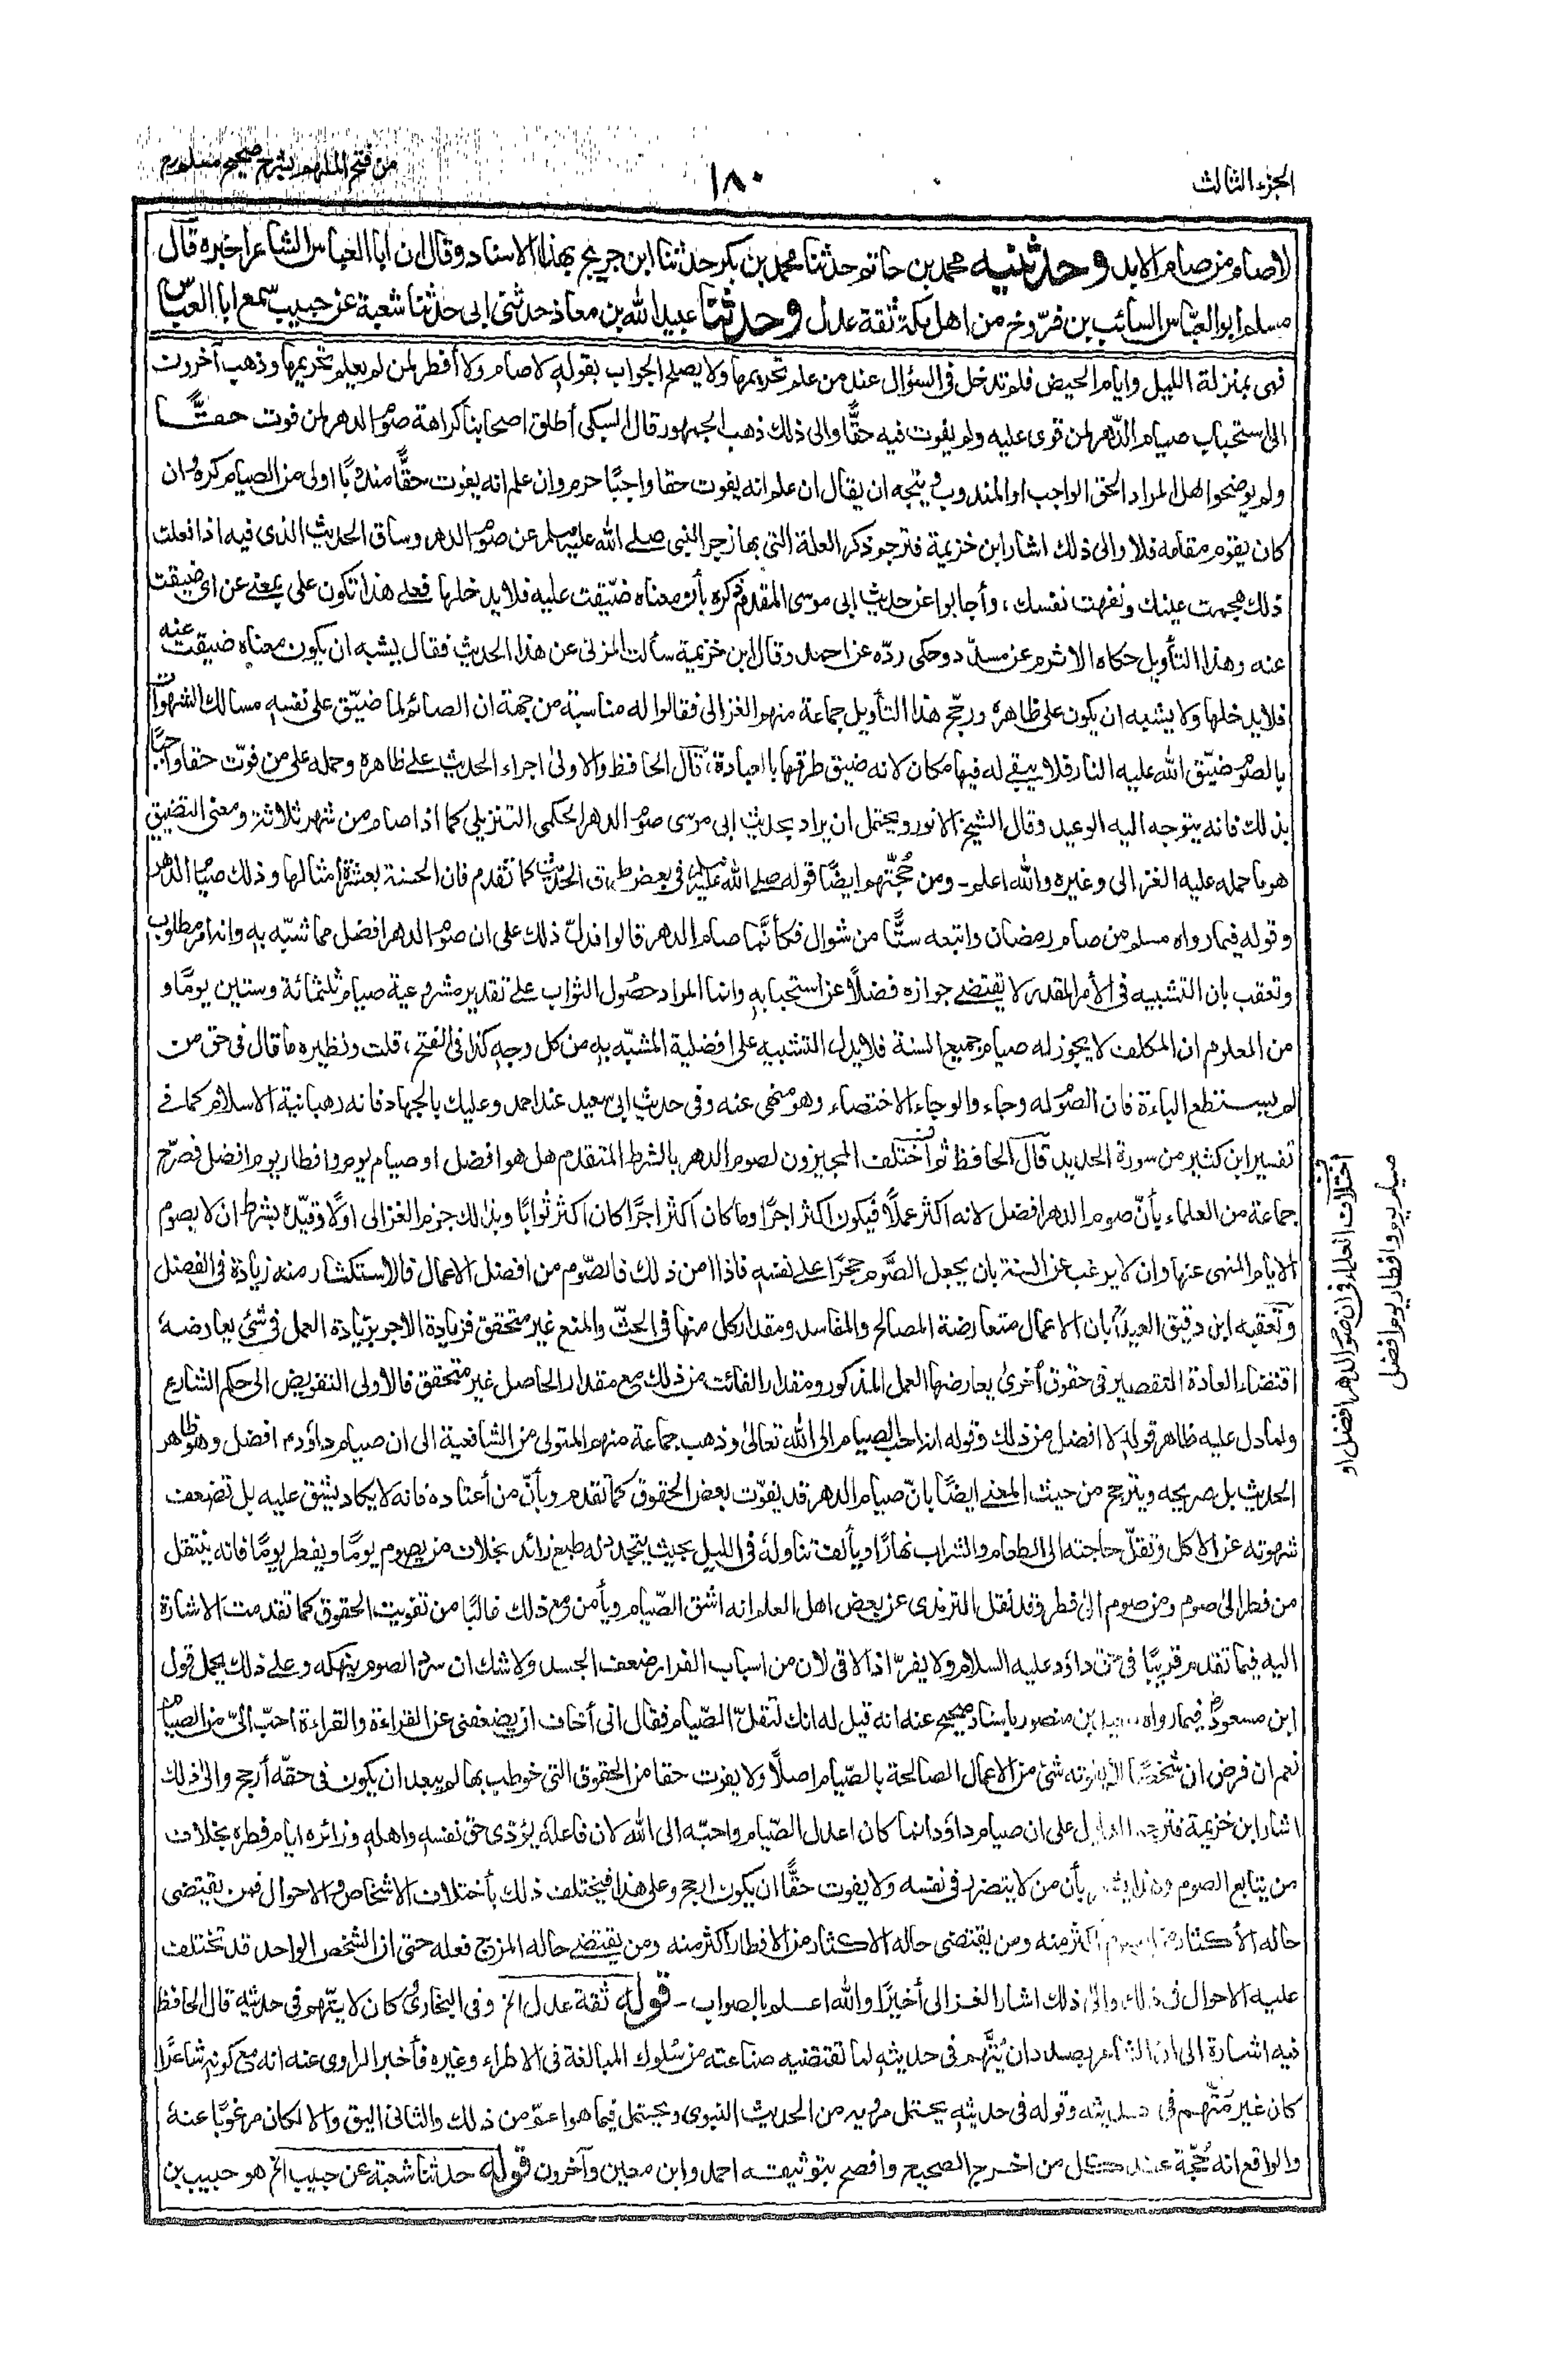 الجزء الثالث
١٨٠
من فتح الملهم بشرح صحيح مسلم
لاصام من صام الابد وحدثنيه محمد بن حاتم حدثنا محمد بن بكر حدثنا ابن جريج بهذا الاسناد وقال ان ابا العباس الشاعر اخبره قال
مسلم ابو العباس السائب بن فرّوخ من اهل مكة ثقة عدل وحدثنا عبيد الله بن معاذ حدثنى ابى حدثنا شعبة عن حبيب سمع ابا العباس
فهى بمنزلة الليل وايام الحيض فلم تدخل فى السؤال عند من علم تحريمها ولا يصلح الجواب بقوله لا صام ولا أفطر لمن لم يعلم تحريمها وذهب آخرون
الى استحباب صيام الدّهر لمن قوى عليه ولم يفوت فيه حقًّا والى ذلك ذهب الجمهور قال السبكى أطلق اصحابنا كراهة صوم الدهر لمن فوت حقًّا
ولم يوضحوا هل المراد الحق الواجب او المندوب ويتجه ان يقال ان علم انه يفوت حقا واجبًا حرم وان علم انه يفوت حقًّا مندوبًا اولى من الصيام كره وان
كان يقوم مقامه فلا والى ذلك اشار ابن خزيمة فترجم ذكر العلة التى بها زجر النبى صلے الله عليه وسلم عن صوم الدهر وساق الحديث الذى فيه اذا فعلت
ذلك هجمت عينك ونفهت نفسك، وأجابوا عن حديث ابى موسى المقدم ذكره بأن معناه ضيّقت عليه فلا يدخلها فعلى هذا تكون على بمعنے عن اى ضيقت
عنه وهذا التأويل حكاه الاثرم عن مسدّد وحكى ردّه عن احمد وقال ابن خزيمة سألت المزنى عن هذا الحديث فقال يشبه ان يكون معناه ضيقت عنه
فلا يدخلها ولا يشبه ان يكون على ظاهره ورجّح هذا التأويل جماعة منهم الغزالى فقالوا له مناسبة من جهة ان الصائم لما ضيّق على نفسه مسالك الشهوات
بالصوم ضيّق الله عليه النار فلا يبقے له فيها مكان لانه ضيق طرقها بالعبادة، قال الحافظ والاولى اجراء الحديث علے ظاهره وحمله على من فوّت حقا واجبًا
بذلك فانه يتوجه اليه الوعيد وقال الشيخ الانور ويحتمل ان يراد بحديث ابى موسى صوم الدهر الحكمى التنزيلى كما اذا صام من شهر ثلاثة ومعنى التضييق
هو ما حمله عليه الغزالى وغيره والله اعلم ــ ومن حُجّتهم ايضًا قوله صلے الله عليه وسلم فى بعض طرق الحديث كما تقدم فان الحسنة بعشرة امثالها وذلك صيام الدهر
وقوله فيما رواه مسلم من صام رمضان واتبعه ستًّا من شوال فكأنّما صام الدهر قالوا فدلّ ذلك على ان صوم الدهر افضل مما شبّه به وانه امر مطلوب
وتعقب بان التشبيه فى الأمر المقدر لا يقتضے جوازه فضلًا عن استحبابه وانما المراد حصُول الثواب علے تقدير مشروعية صيام ثلثمائة وستين يومًا و
من المعلوم ان المكلف لا يجوز له صيام جميع السنة فلا يدل التشبيه على افضلية المشبّه به من كل وجه كذا فى الفتح، قلت ونظيره ما قال فى حق من
لم يستطع الباءة فان الصوم له وجاء والوجاء الاختصاء وهو منهى عنه وفى حديث ابى سعيد عند احمد وعليك بالجهاد فانه رهبانية الاسلام كما فے
تفسير ابن كثير من سورة الحديد قال الحافظ ثم اختلف المجيزون لصوم الدهر بالشرط المتقدم هل هو افضل او صيام يوم وافطار يوم افضل فصرّح
جماعة من العلماء بأنّ صوم الدهر افضل لانه اكثر عملًا فيكون اكثر اجرًا وما كان اكثر اجرًا كان اكثر ثوابًا وبذلك جزم الغزالى اولًا وقيّده بشرط ان لا يصوم
الايام المنهى عنها وان لا يرغب عن السنة بان يجعل الصّوم حجرًا على نفسه فاذا امن ذلك فالصّوم من افضل الاعمال فالاستكثار منه زيادة فى الفضل
وتعقبه ابن دقيق العيد بان الاعمال متعارضة المصالح والمفاسد ومقدار كل منها فى الحثّ والمنع غير متحقق فزيادة الاجر بزيادة العمل فى شئ يعارضه
اقتضاء العادة التقصير فى حقوق أخرى يعارضها العمل المذكور ومقدار الفائت من ذلك مع مقدار الحاصل غير متحقق فالاولى التفويض الى حكم الشارع
ولما دل عليه ظاهر قوله لا افضل من ذلك وقوله انه احب الصيام الى الله تعالى وذهب جماعة منهم المتولى من الشافعية الى ان صيام داؤد افضل وهو ظاهر
الحديث بل صريحه ويترجح من حيث المعنے ايضًا بانّ صيام الدهر قد يفوّت بعض الحقوق كما تقدم وبأنّ من أعتاده فانه لا يكاد يشق عليه بل تضعف
شهوته عن الاكل وتقلّ حاجته الى الطعام والشراب نهارًا ويألف تناوله فى الليل بحيث يتجدد له طبع زائد بخلاف من يصوم يومًا ويفطر يومًا فانه ينتقل
من فطر الى صوم ومن صوم الى فطر وقد نقل الترمذى عن بعض اهل العلم انه اشق الصّيام ويأمن مع ذلك غالبًا من تفويت الحقوق كما تقدمت الاشارة
اليه فيما تقدم قريبًا فى حق داؤد عليه السلام ولا يفرّ اذا لاقى لان من اسباب الفرار ضعف الجسد ولا شك ان سرد الصوم ينهكه وعلے ذلك يحمل قول
ابن مسعودؓ فيما رواه سعيد بن منصور باسناد صحيح عنه انه قيل له انك لتقلّ الصّيام فقال انى أخاف ان يضعفنى عن القراءة والقراءة احبّ الىّ من الصيام
نعم ان فرض ان شخصًا لا يفوته شئ من الاعمال الصالحة بالصّيام اصلًا ولا يفوت حقا من الحقوق التى خوطب بها لم يبعد ان يكون فى حقّه أرجح والى ذلك
اشار ابن خزيمة فترجم الدليل على ان صيام داؤد انما كان اعدل الصّيام واحبّه الى الله لان فاعله يؤدّى حق نفسه واهله وزائره ايام فطره بخلاف
من يتابع الصوم وهذا يشعر بأن من لا يتضرر فى نفسه ولا يفوت حقًّا ان يكون ارجح وعلى هذا فيختلف ذلك بأختلاف الاشخاص والاحوال فمن يقتضى
حاله الأكثار من الصوم اكثر منه ومن يقتضى حاله الاكثار من الافطار اكثر منه ومن يقتضے حاله المزج فعله حتى ان الشخص الواحد قد تختلف
عليه الاحوال فى ذلك والى ذلك اشار الغزالى أخيرًا والله اعلم بالصواب ــ قوله ثقة عدل الخ وفى البخارى كان لا يتّهم فى حديثه قال الحافظ
فيه اشارة الى ان الشاعر بصدد ان يُتَّهم فى حديثه لما تقتضيه صناعته من سُلوك المبالغة فى الاطراء وغيره فأخبر الراوى عنه انه مع كونه شاعرًا
كان غير متّهم فى حديثه وقوله فى حديثه يحتمل مرويه من الحديث النبوى ويحتمل فيما هو اعمّ من ذلك والثانى اليق والا لكان مرغوبًا عنه
والواقع انه حُجّة عند كل من اخرج الصحيح وافصح بتوثيقه احمد وابن معين وآخرون قوله حدثنا شعبة عن حبيب الخ هو حبيب بن
اختلاف العلماء فى ان صوم الدهر افضل او
صيام يوم وافطار يوم افضل